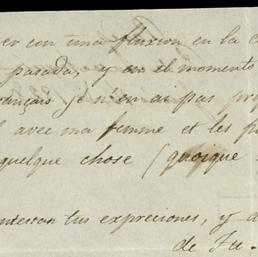 er con una fluxion en la c
pasada, y en el momento
ançais je n'en ai pas pro
l avec ma femme et les p
quelque chose (quoique
ntestan tus expreciones, y a
de Fu.